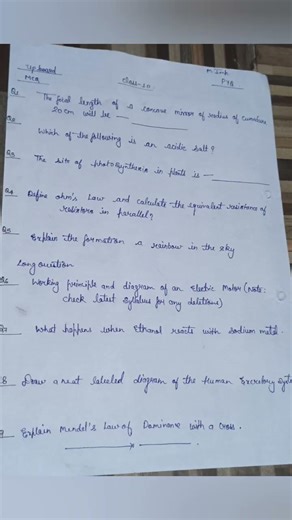 Up board
Class-10
M.Imb
MCQ
PYQ
Q1 The focal length of a concave mirror of radius of curvature
20 cm will be —
Q2 Which of the following is an acidic salt?
Q3 The site of photosynthesis in plants is —
Q4 Define ohm's Law and calculate the equivalent resistance of
resistors in parallel?
Q5 Explain the formation a rainbow in the sky
Long question
Q6 Working principle and diagram of an Electric Motor (note:
check latest syllabus for any deletions)
What happens when Ethanol reacts with sodium metal.
8 Draw a neat labeled diagram of the Human Excretory
Explain Mendel's Law of Dominance with a Cross.